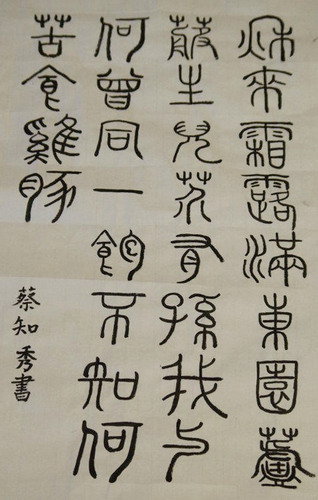 秋來霜露滿東園蘆
菔生兒芥有孫我与
何曾同一飽不知何
苦食雞豚
蔡知秀書